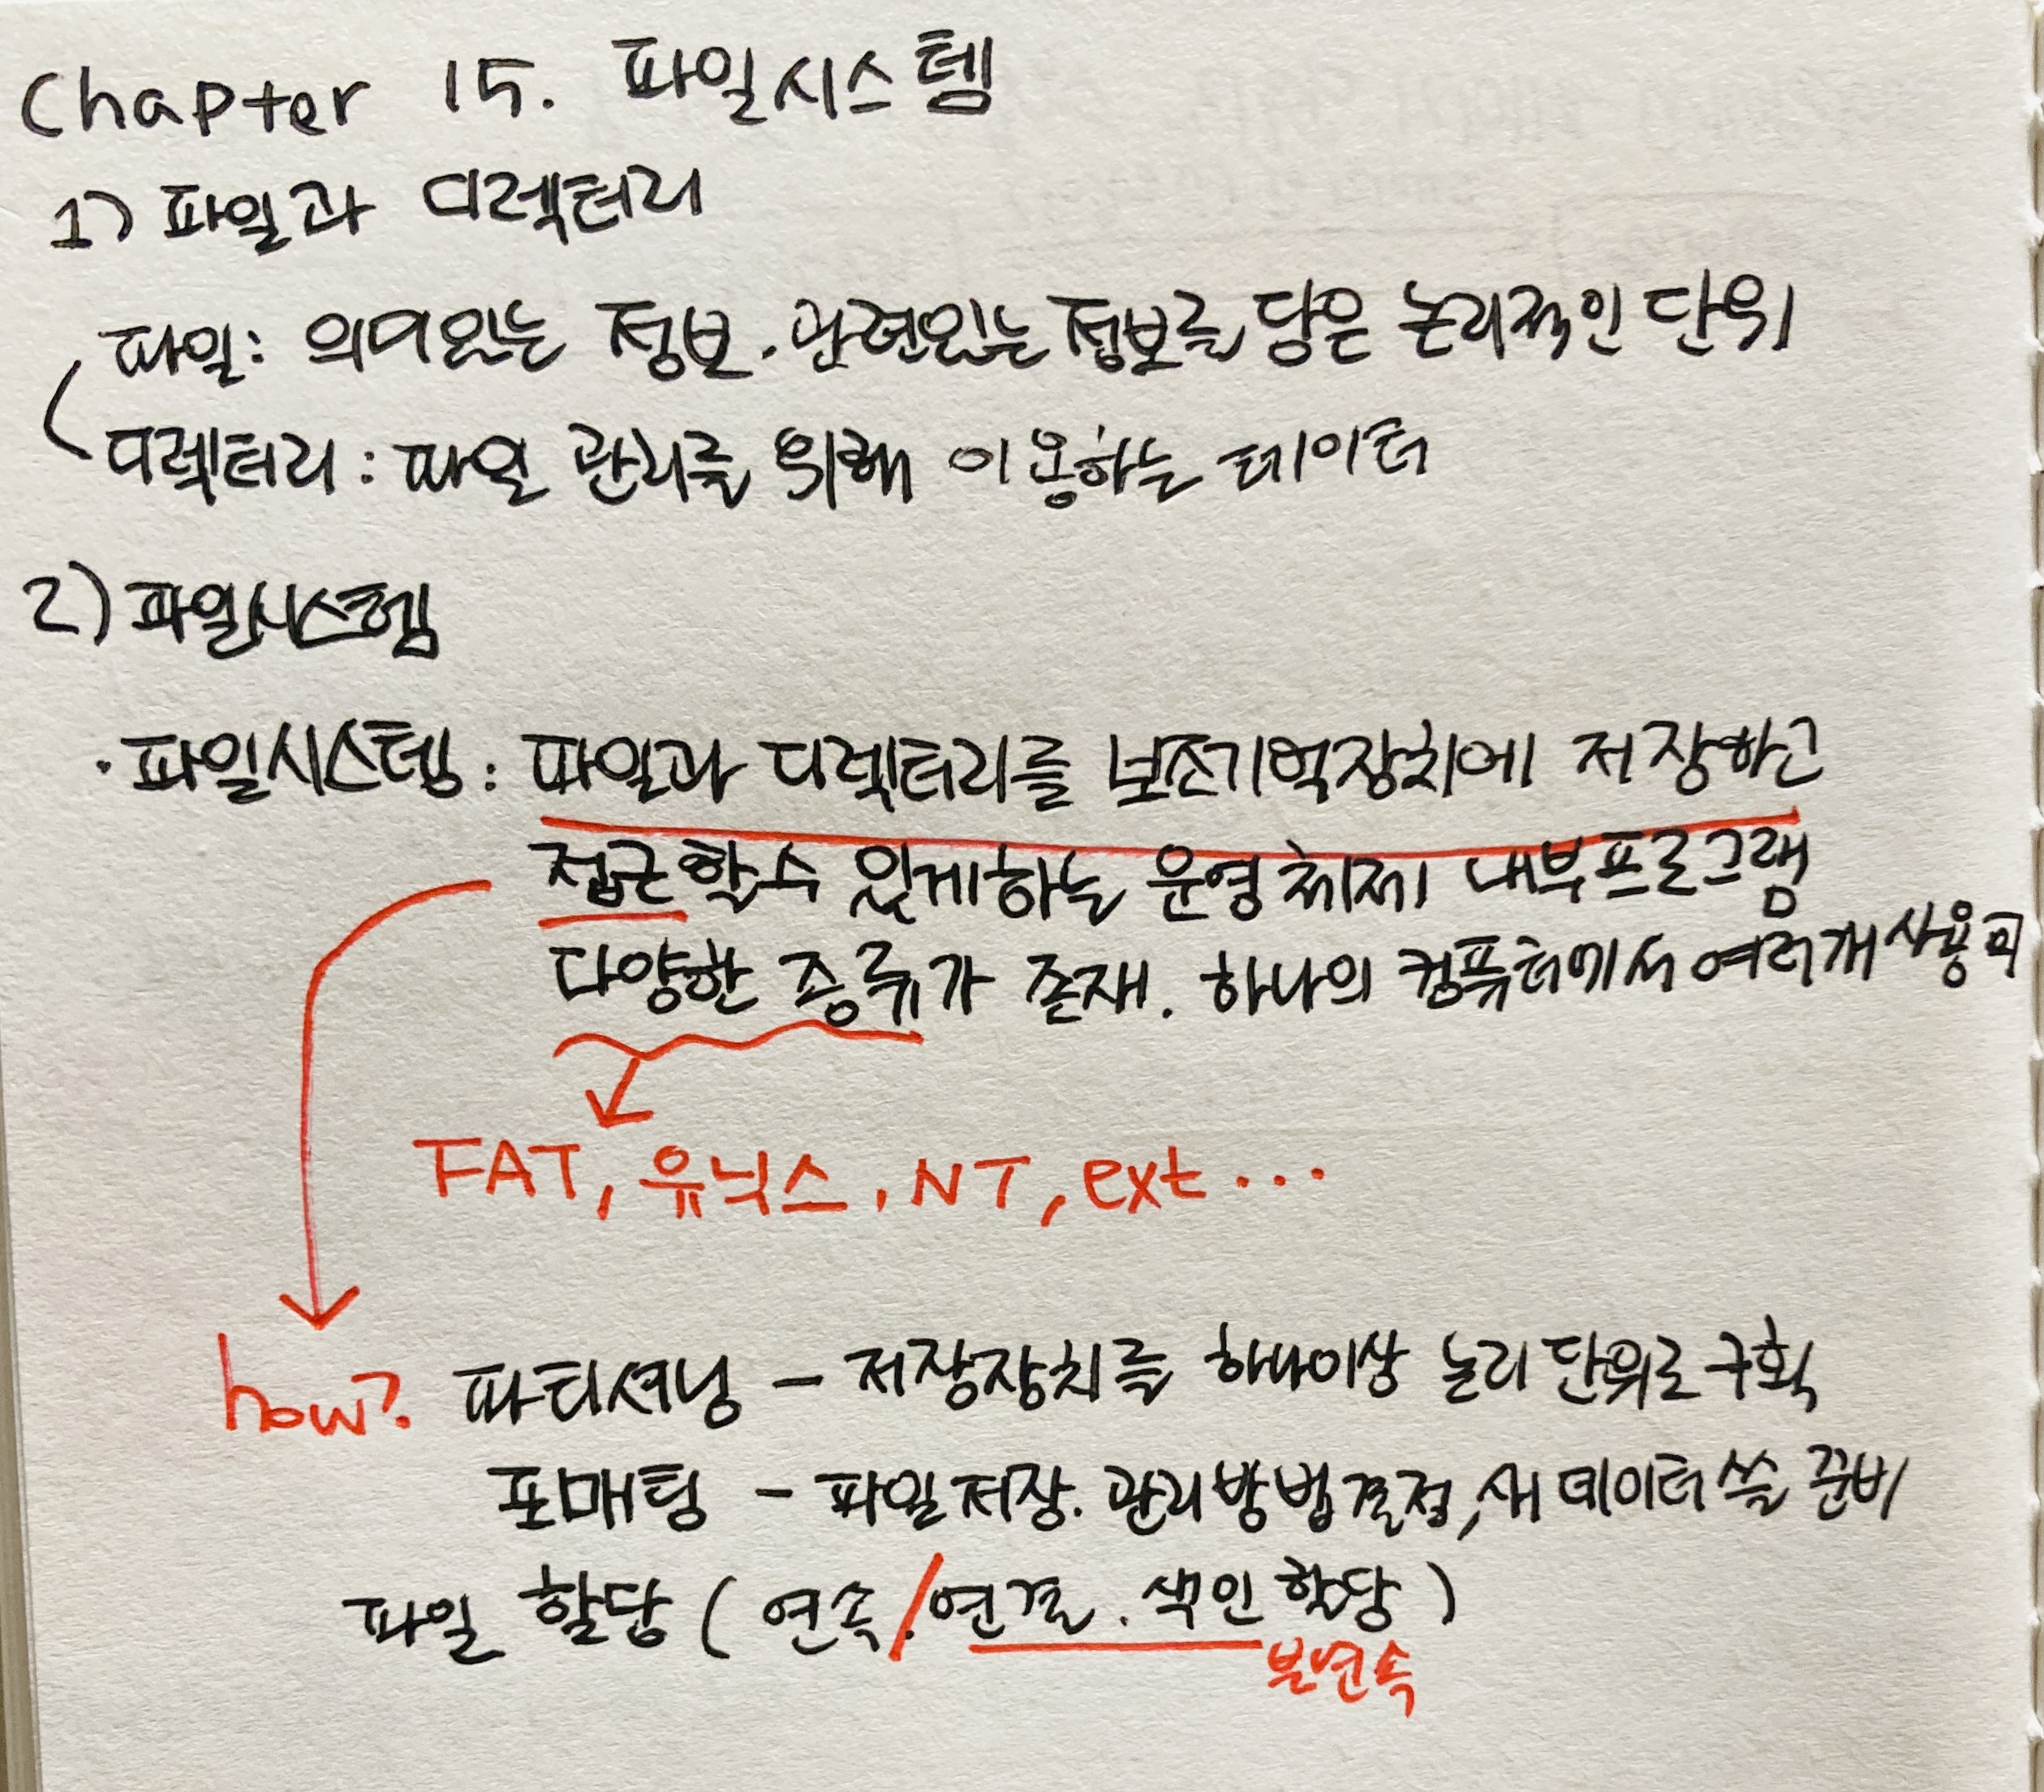 Chapter 15. 파일시스템
1) 파일과 디렉터리
파일: 의미있는 정보. 관련있는 정보를 담은 논리적인 단위
디렉터리: 파일 관리를 위해 이용하는 데이터
2) 파일시스템
· 파일시스템: 파일과 디렉터리를 보조기억장치에 저장하고
접근할 수 있게하는 운영체제 내부프로그램
다양한 종류가 존재. 하나의 컴퓨터에서 여러개 사용
FAT, 유닉스, NT, ext ...
how? 파티셔닝 - 저장장치를 하나이상 논리 단위로 구획
포매팅 - 파일저장. 관리방법결정, 새 데이터 쓸 준비
파일 할당 ( 연속 / 연결. 색인 할당 )
불연속